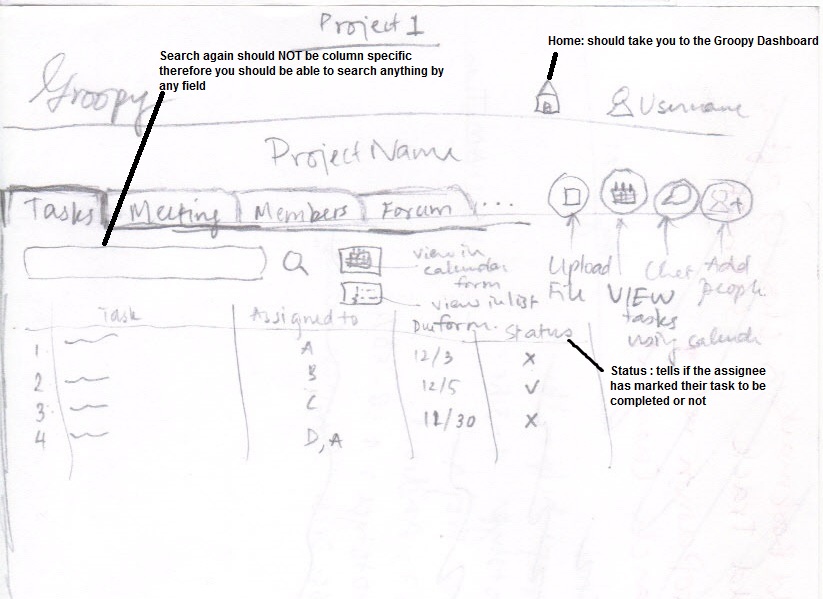 Project 1
Search again should NOT be column specific
therefore you should be able to search anything by
any field
Home: should take you to the Groopy Dashboard
Groopy
Username
Project Name
Tasks
Meeting
Members
Forum
...
view in
calendar
form
view in list
form.
Upload
File
VIEW
tasks
using calendar
Chat
Add
people
Task
Assigned to
Due
Status
1. A 12/3 X
2 B 12/5 ✓
3. C 11/30 X
4 D, A
Status : tells if the assignee
has marked their task to be
completed or not